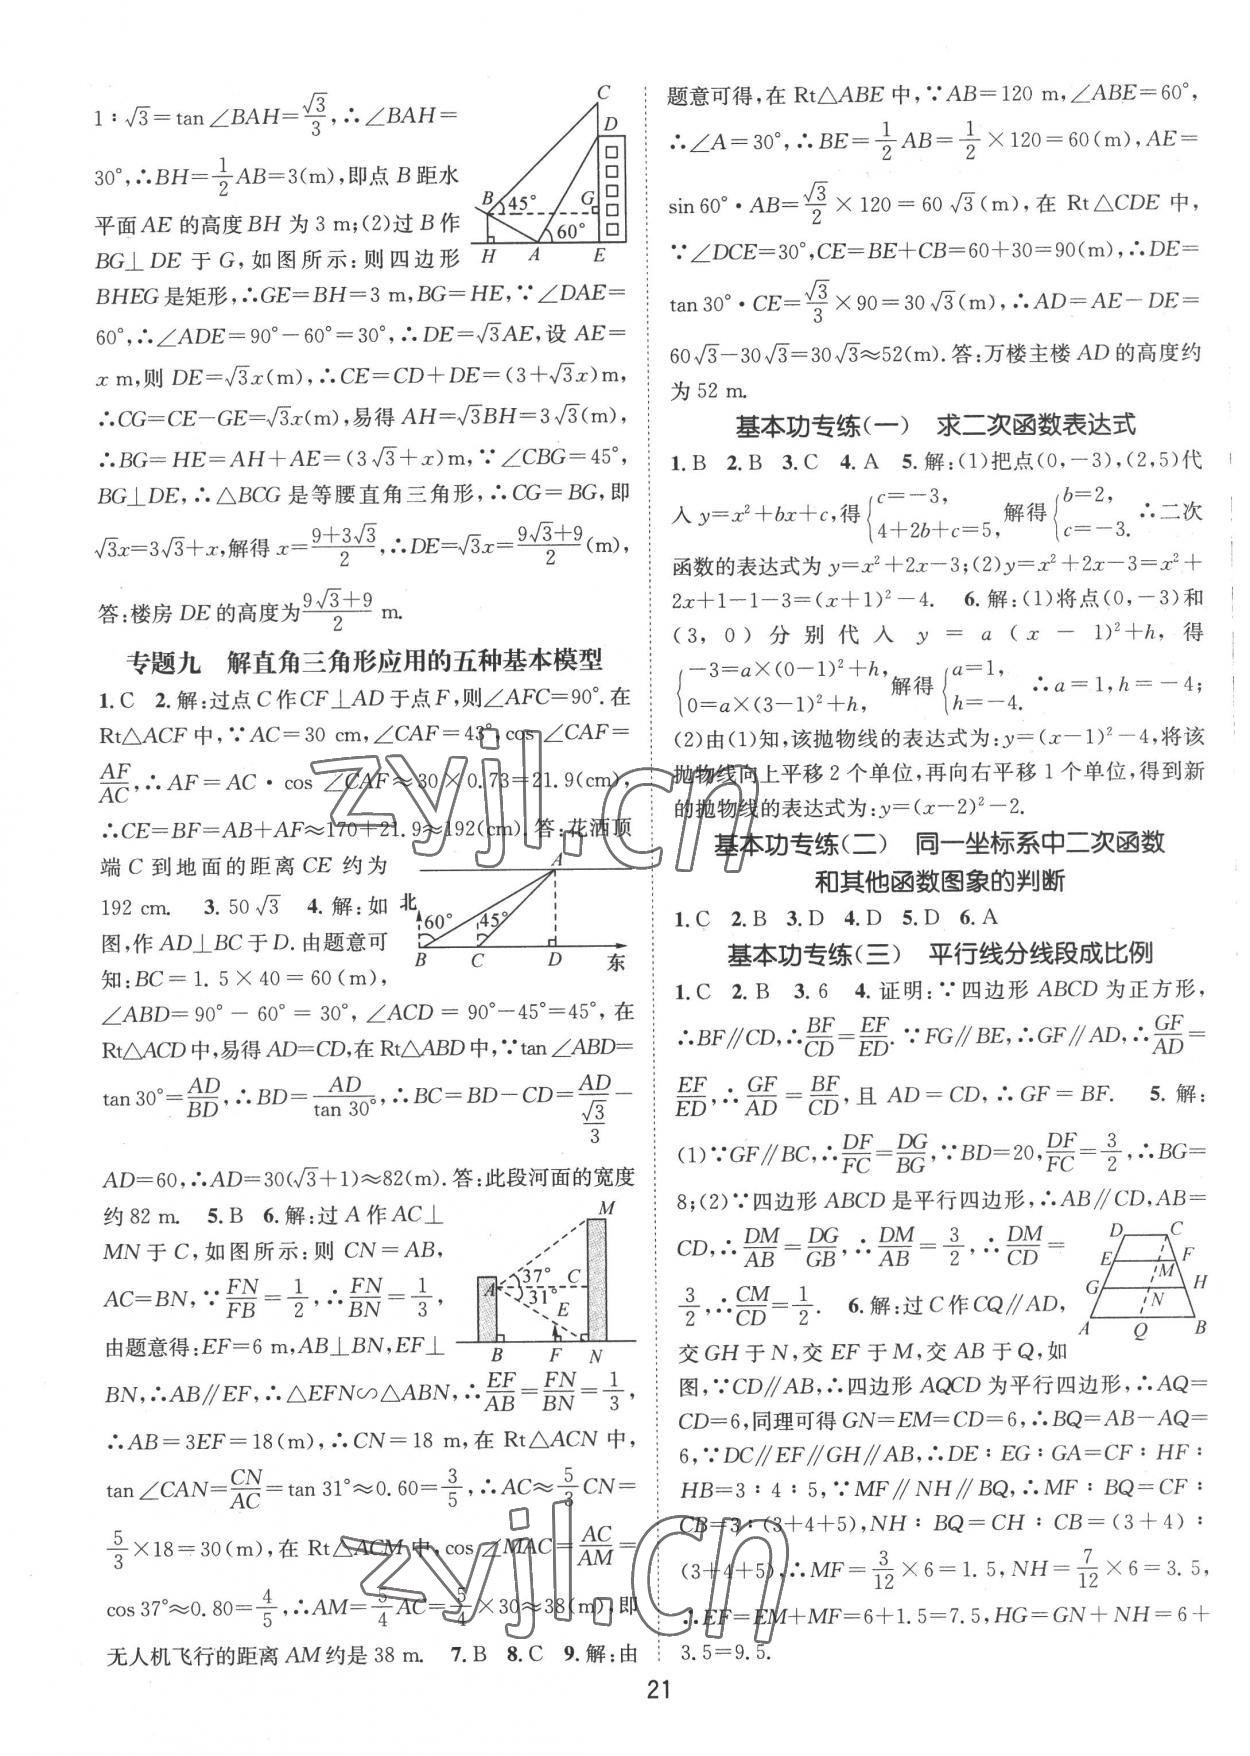 1∶√3=tan∠BAH=√3/3,∴∠BAH=
30°,∴BH=1/2AB=3(m),即点 B 距水
平面 AE 的高度 BH 为 3 m;(2)过 B 作
BG⊥DE 于 G,如图所示:则四边形
BHEG 是矩形,∴GE=BH=3 m,BG=HE,∵∠DAE=
60°,∴∠ADE=90°-60°=30°,∴DE=√3AE,设 AE=
x m,则 DE=√3x(m),∴CE=CD+DE=(3+√3x)m,
∴CG=CE-GE=√3x(m),易得 AH=√3BH=3√3(m),
∴BG=HE=AH+AE=(3√3+x)m,∵∠CBG=45°,
BG⊥DE,∴△BCG 是等腰直角三角形,∴CG=BG,即
√3x=3√3+x,解得 x=(9+3√3)/2,∴DE=√3x=(9√3+9)/2(m),
答:楼房 DE 的高度为(9√3+9)/2 m.
C
D
B 45° G
60°
H A E
专题九 解直角三角形应用的五种基本模型
1.C 2.解:过点 C 作 CF⊥AD 于点 F,则∠AFC=90°.在
Rt△ACF 中,∵AC=30 cm,∠CAF=43°,cos∠CAF=
AF/AC,∴AF=AC·cos∠CAF≈30×0.73=21.9(cm),
∴CE=BF=AB+AF≈170+21.9≈192(cm).答:花洒顶
端 C 到地面的距离 CE 约为
192 cm. 3.50√3 4.解:如
图,作 AD⊥BC 于 D.由题意可
知:BC=1.5×40=60(m),
∠ABD=90°-60°=30°,∠ACD=90°-45°=45°,在
Rt△ACD 中,易得 AD=CD,在 Rt△ABD 中,∵tan∠ABD=
tan 30°=AD/BD,∴BD=AD/tan 30°,∴BC=BD-CD=AD/(√3/3)-
AD=60,∴AD=30(√3+1)≈82(m).答:此段河面的宽度
约 82 m. 5.B 6.解:过 A 作 AC⊥
MN 于 C,如图所示:则 CN=AB,
AC=BN,∵FN/FB=1/2,∴FN/BN=1/3,
由题意得:EF=6 m,AB⊥BN,EF⊥
BN,∴AB∥EF,∴△EFN∽△ABN,∴EF/AB=FN/BN=1/3,
∴AB=3EF=18(m),∴CN=18 m,在 Rt△ACN 中,
tan∠CAN=CN/AC=tan 31°≈0.60=3/5,∴AC≈5/3CN=
5/3×18=30(m),在 Rt△ACM 中,cos∠MAC=AC/AM=
cos 37°≈0.80=4/5,∴AM=5/4AC=5/4×30≈38(m),即
无人机飞行的距离 AM 约是 38 m. 7.B 8.C 9.解:由
北
A
60° 45°
B C D 东
M
A 37° C
31°
E
B F N
题意可得,在 Rt△ABE 中,∵AB=120 m,∠ABE=60°,
∴∠A=30°,∴BE=1/2AB=1/2×120=60(m),AE=
sin 60°·AB=√3/2×120=60√3(m),在 Rt△CDE 中,
∵∠DCE=30°,CE=BE+CB=60+30=90(m),∴DE=
tan 30°·CE=√3/3×90=30√3(m),∴AD=AE-DE=
60√3-30√3=30√3≈52(m).答:万楼主楼 AD 的高度约
为 52 m.
基本功专练(一) 求二次函数表达式
1.B 2.B 3.C 4.A 5.解:(1)把点(0,-3),(2,5)代
入 y=x²+bx+c,得{c=-3, 4+2b+c=5, 解得{b=2, c=-3. ∴二次
函数的表达式为 y=x²+2x-3;(2)y=x²+2x-3=x²+
2x+1-1-3=(x+1)²-4. 6.解:(1)将点(0,-3)和
(3,0)分别代入 y=a(x-1)²+h,得
{-3=a×(0-1)²+h, 0=a×(3-1)²+h, 解得{a=1, h=-4. ∴a=1,h=-4;
(2)由(1)知,该抛物线的表达式为:y=(x-1)²-4,将该
抛物线向上平移 2 个单位,再向右平移 1 个单位,得到新
的抛物线的表达式为:y=(x-2)²-2.
基本功专练(二) 同一坐标系中二次函数
和其他函数图象的判断
1.C 2.B 3.D 4.D 5.D 6.A
基本功专练(三) 平行线分线段成比例
1.C 2.B 3.6 4.证明:∵四边形 ABCD 为正方形,
∴BF∥CD,∴BF/CD=EF/ED.∵FG∥BE,∴GF∥AD,∴GF/AD=
EF/ED,∴GF/AD=BF/CD,且 AD=CD,∴GF=BF. 5.解:
(1)∵GF∥BC,∴DF/FC=DG/BG,∵BD=20,DF/FC=3/2,∴BG=
8;(2)∵四边形 ABCD 是平行四边形,∴AB∥CD,AB=
CD,∴DM/AB=DG/GB,∴DM/AB=3/2,∴DM/CD=
3/2,∴CM/CD=1/2. 6.解:过 C 作 CQ∥AD,
交 GH 于 N,交 EF 于 M,交 AB 于 Q,如
图,∵CD∥AB,∴四边形 AQCD 为平行四边形,∴AQ=
CD=6,同理可得 GN=EM=CD=6,∴BQ=AB-AQ=
6,∵DC∥EF∥GH∥AB,∴DE∶EG∶GA=CF∶HF∶
HB=3∶4∶5,∵MF∥NH∥BQ,∴MF∶BQ=CF∶
CB=3∶(3+4+5),NH∶BQ=CH∶CB=(3+4)∶
(3+4+5),∴MF=3/12×6=1.5,NH=7/12×6=3.5,
∴EF=EM+MF=6+1.5=7.5,HG=GN+NH=6+
3.5=9.5.
D C
E M F
G N H
A Q B
zyjl.cn
zyjl.cn
21